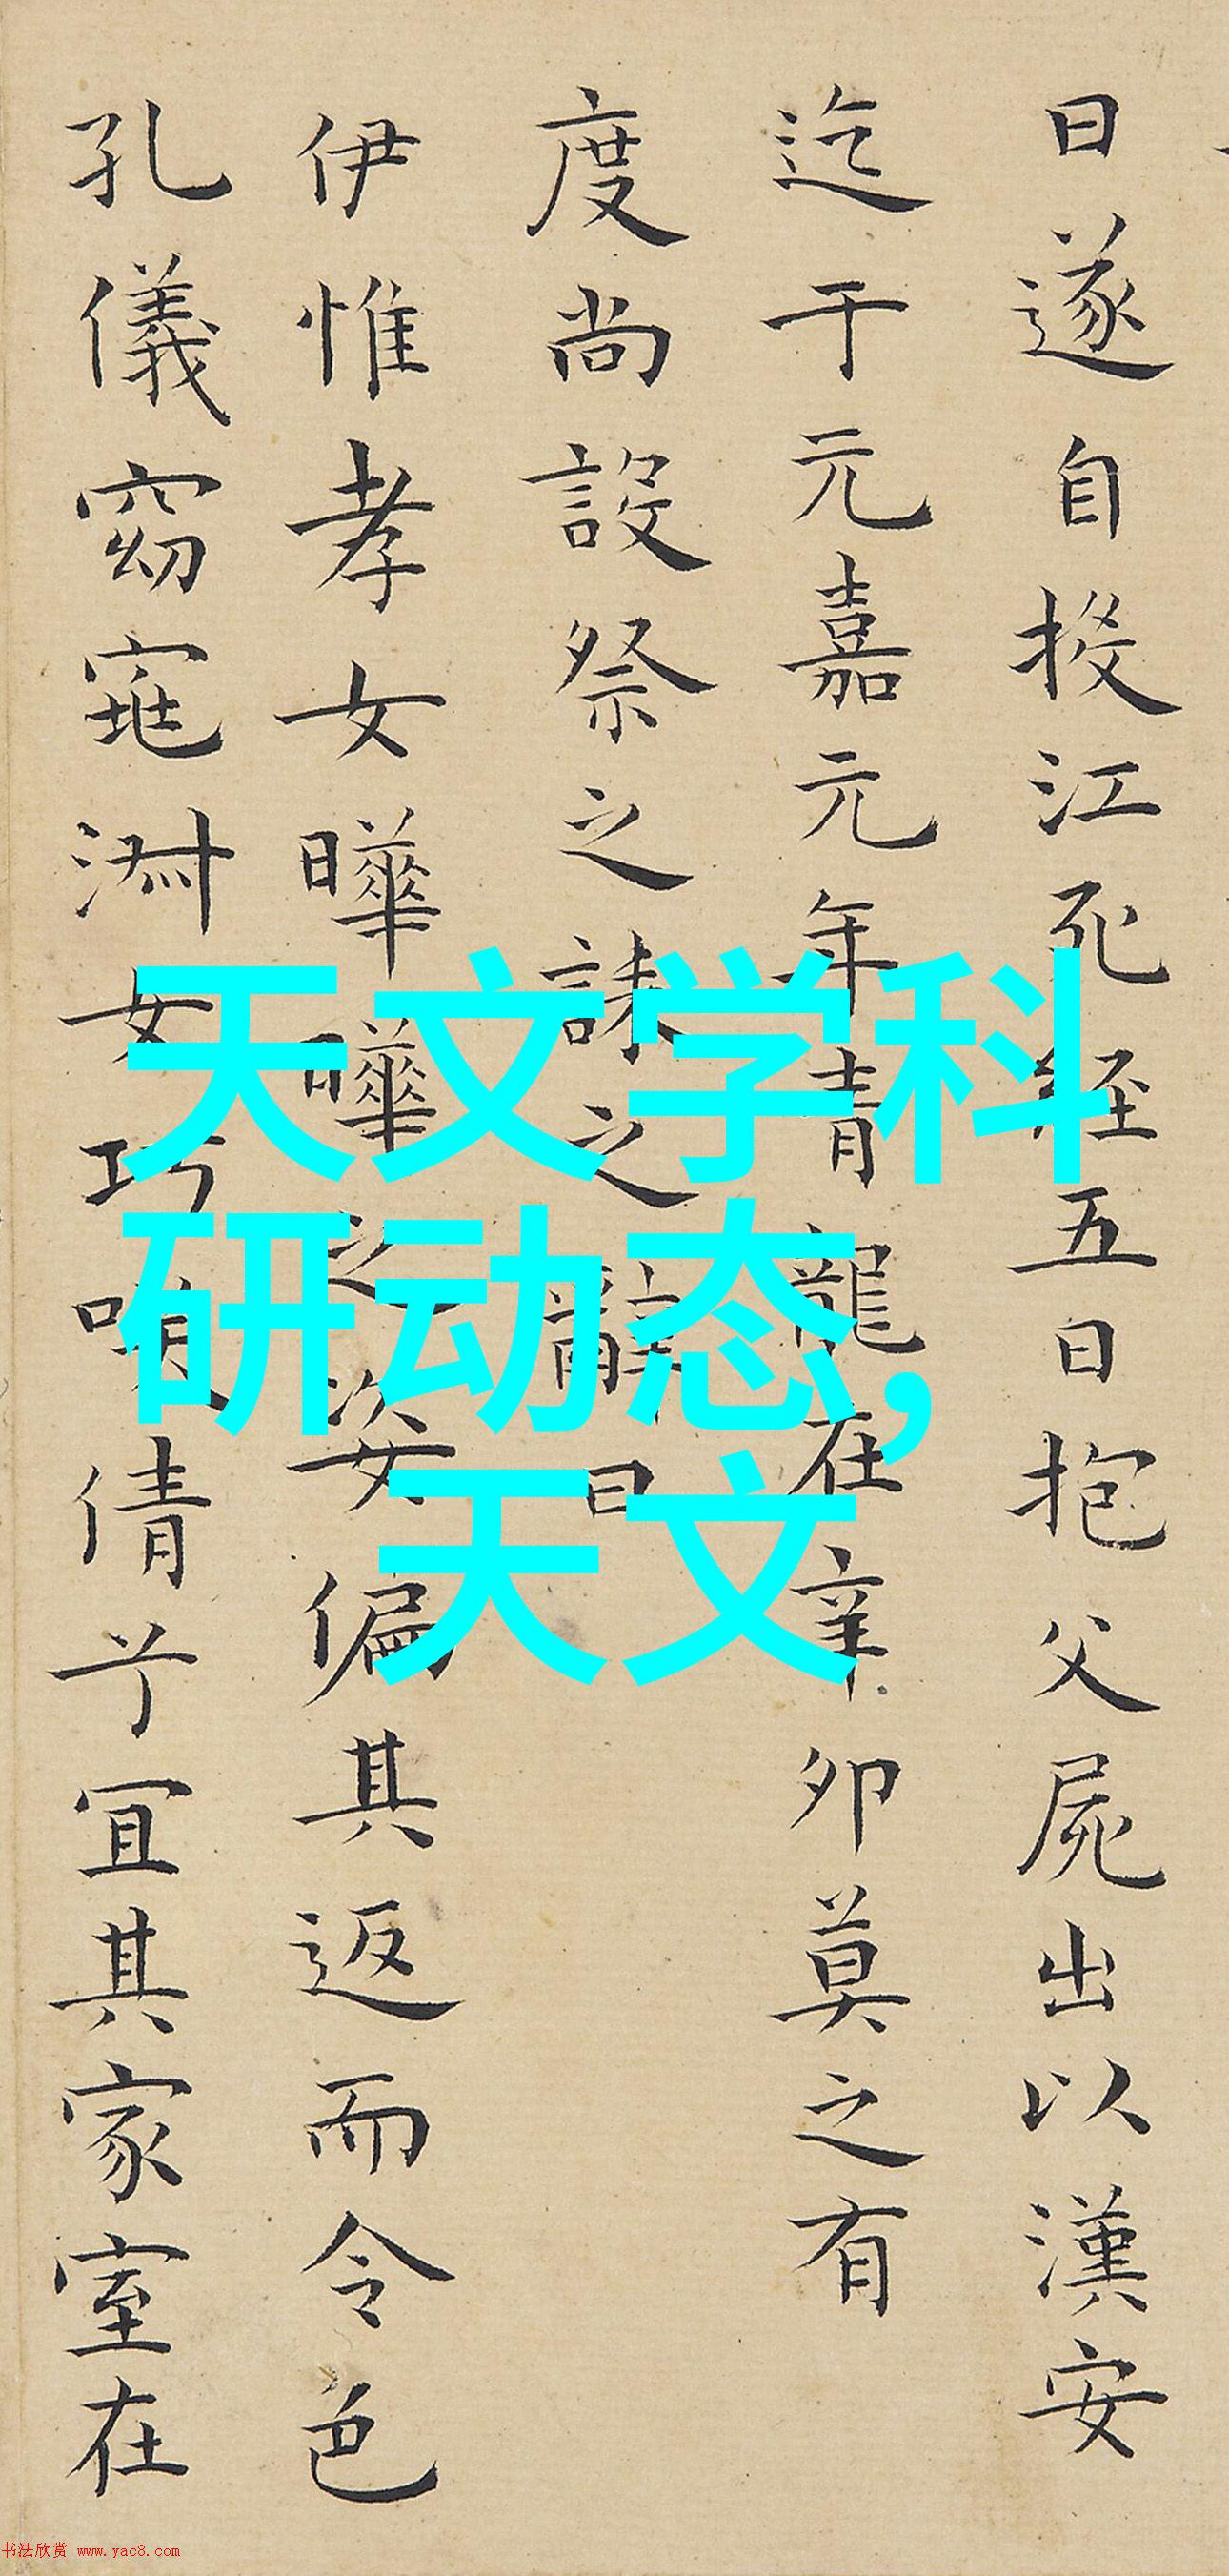 日遂自投江死經五日抱父屍出以漢安
迄于元嘉元年青龍在辛卯莫之有
度尚設祭之誄之辭曰
伊惟孝女曄曄之姿偏其返而令色
孔儀窈窕淑女巧咲倩兮宜其家室在
天文学科
研动态,
天文
书法欣赏 www.yac8.com